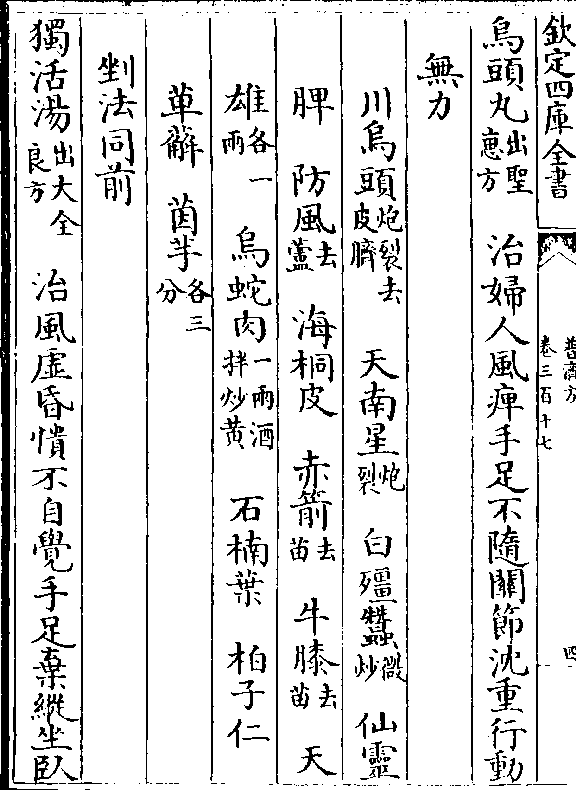 欽定四庫全書
普濟方
卷三百十七
四
烏頭丸出聖惠方　治婦人風痺手足不隨關節沈重行動
無力
川烏頭炮裂去皮臍　天南星炮裂　白殭蠶微炒　仙靈
脾　防風去蘆　海桐皮　赤箭去苗　牛膝去苗　天
雄各一兩　烏蛇肉一兩酒拌炒黄　石楠葉　柏子仁
萆薢　茵芋各三分
剉法同前
獨活湯出大全良方　治風虛昏憒不自覺手足棄縱坐臥